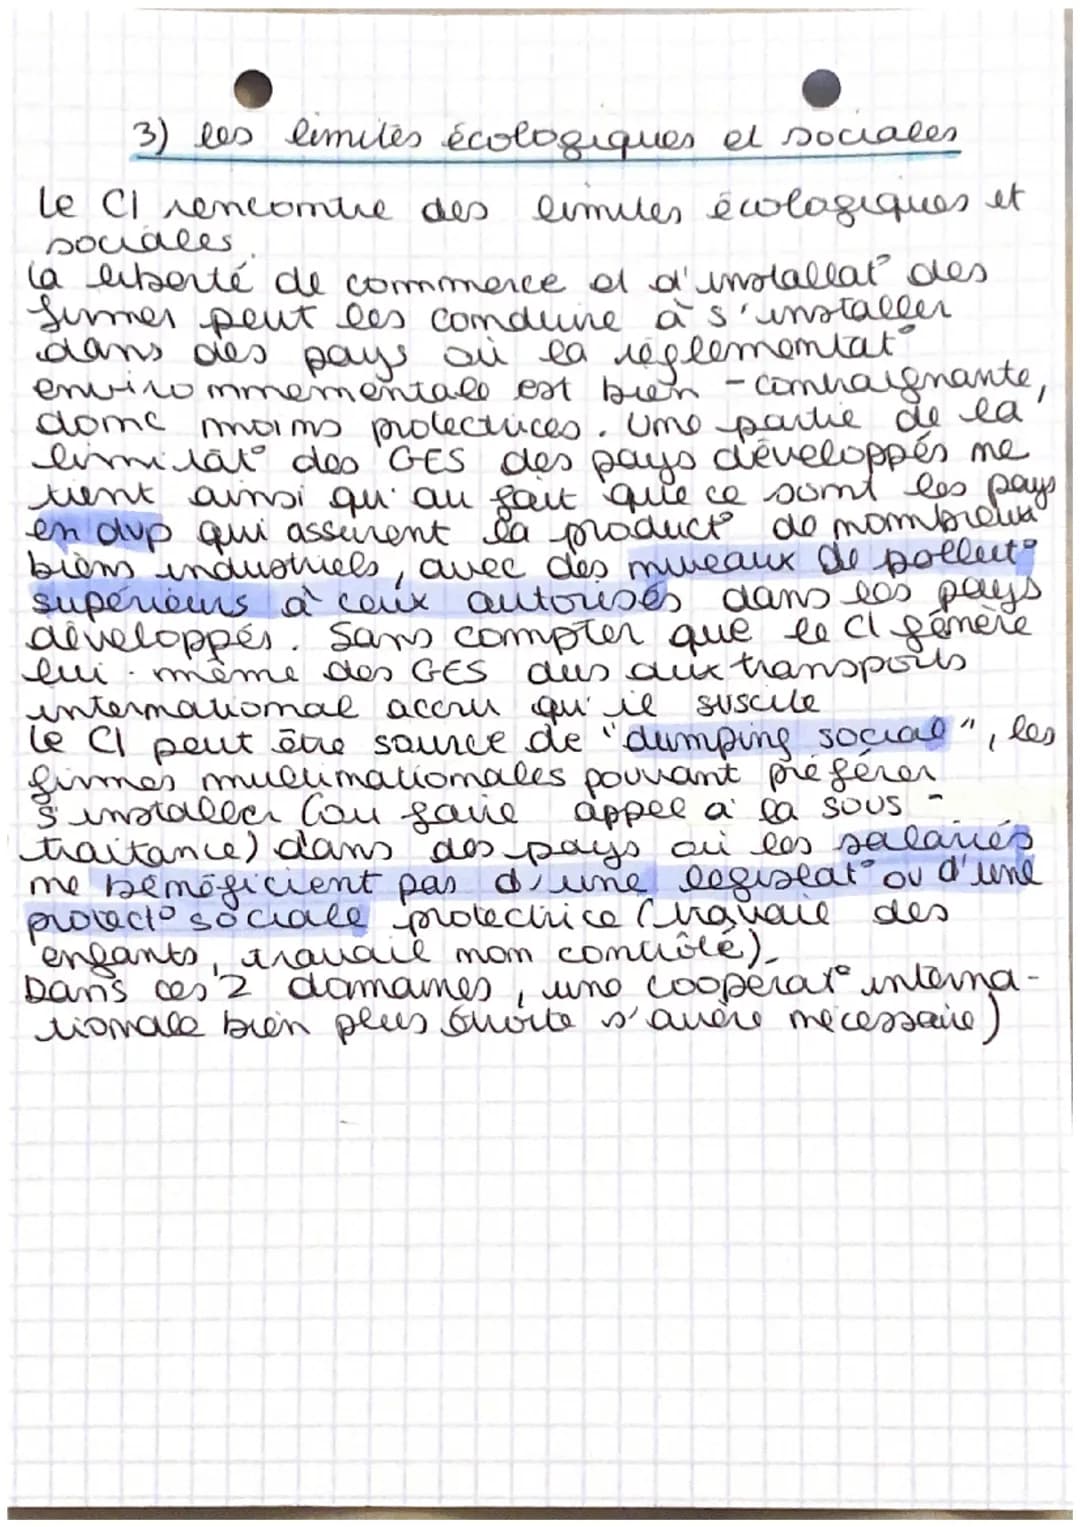 3) les limites écologiques et sociales
Le CI rencontre des limites écologiques et
sociales.
La liberté de commerce et d'installat° des
firmes peut les conduire à s'installer
dans des pays où la réglementat°
environnementale est bien - contraignante,
donc moins protectrices. Une partie de la
limitat° des GES des pays développés ne
tient ainsi qu'au fait que ce sont les pays
en dvp qui assurent la product° de nombreux
biens industriels, avec des niveaux de pollut°
supérieurs à ceux autorisés dans les pays
développés. Sans compter que le CI génère
lui-même des GES dus aux transports
international accru qu'il suscite
Le CI peut être source de "dumping social", les
firmes multinationales pouvant préférer
s'installer (ou faire appel à la sous-
traitance) dans des pays où les salariés
ne bénéficient pas d'une législat° ou d'une
protect° sociale protectrice (travail des
enfants, travail non contrôlé).
Dans ces 2 domaines, une coopérat° interna-
tionale bien plus étroite s'avère nécessaire)